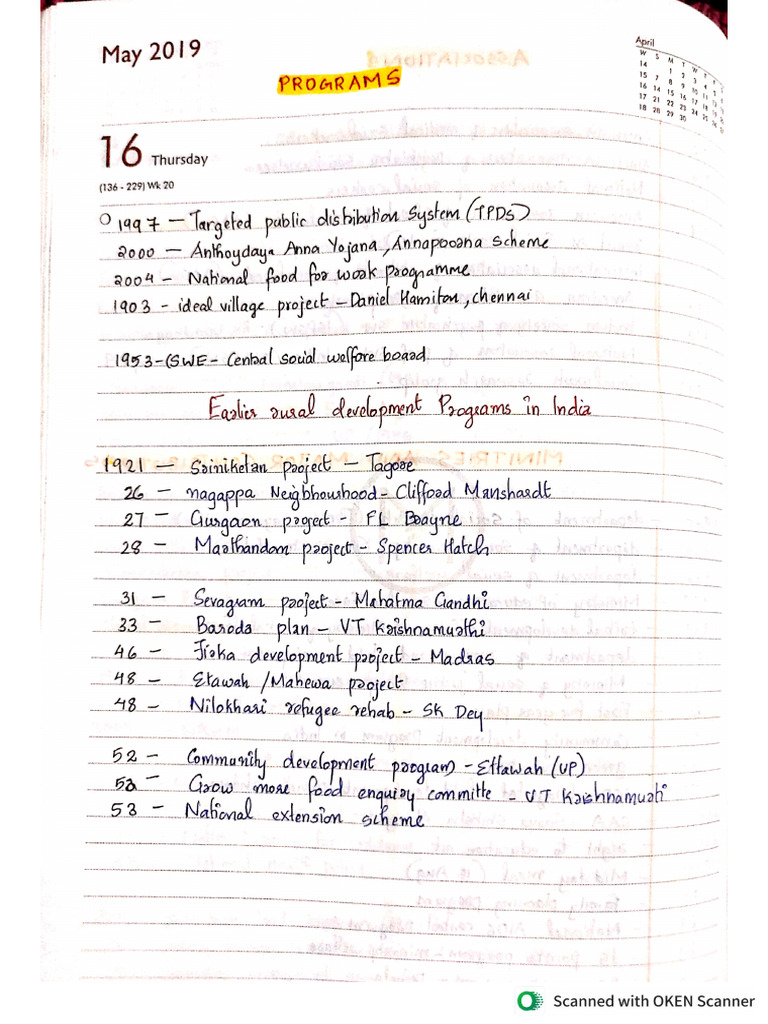 May 2019
PROGRAMS
April
W S M T W T F S
14 1 2 3 4 5
15 7 8 9 10 11
16 14 15 16 17 18
17 21 22 23 24 25
18 28 29 30
16 Thursday
(136 - 229) Wk 20
1997 — Targeted public distribution System (TPDS)
2000 — Anthoydaya Anna Yojana, Annapoorna scheme
2004 - National food for work programme
1903 - ideal village project — Daniel Hamilton, chennai
1953-(SWE - Central social welfare board
Earlier rural development Programs in India
1921 — Sriniketan project — Tagore
26 — nagappa Neighbhourhood - Clifford Manshardt
27 — Gurgaon project - FL Brayne
28 — Marthandam project - Spencer Hatch
31 — Sevagram project - Mahatma Gandhi
33 — Baroda plan — VT Krishnamurthi
46 — Jirka development project - Madras
48 — Etawah / Mahewa project
48 - Nilokhari refugee rehab - SK Dey
52 — Community development program - Ettawah (UP)
52 — Grow more food enquiry committe - VT Krishnamurti
53 — National extension scheme
Scanned with OKEN Scanner